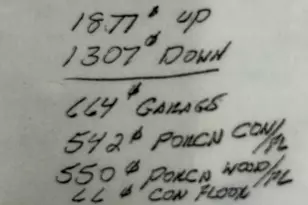 1877 ⌀ UP
1307 ⌀ DOWN
664 ⌀ GARAGE
542 ⌀ PORCH CON/PL
550 ⌀ PORCH WOOD/PL
66 ⌀ CON FLOOR